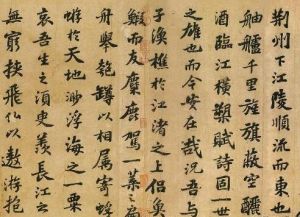 荆州下江陵順流而東也
舳艫千里旌旗蔽空釃
酒臨江橫槊賦詩固一世
之雄也而今安在哉況吾與
子漁樵於江渚之上侶魚
鰕而友麋鹿駕一葉之扁
舟舉匏罇以相屬寄蜉
蝣於天地渺浮海之一粟
哀吾生之須臾羨長江之
無窮挾飛仙以遨遊抱